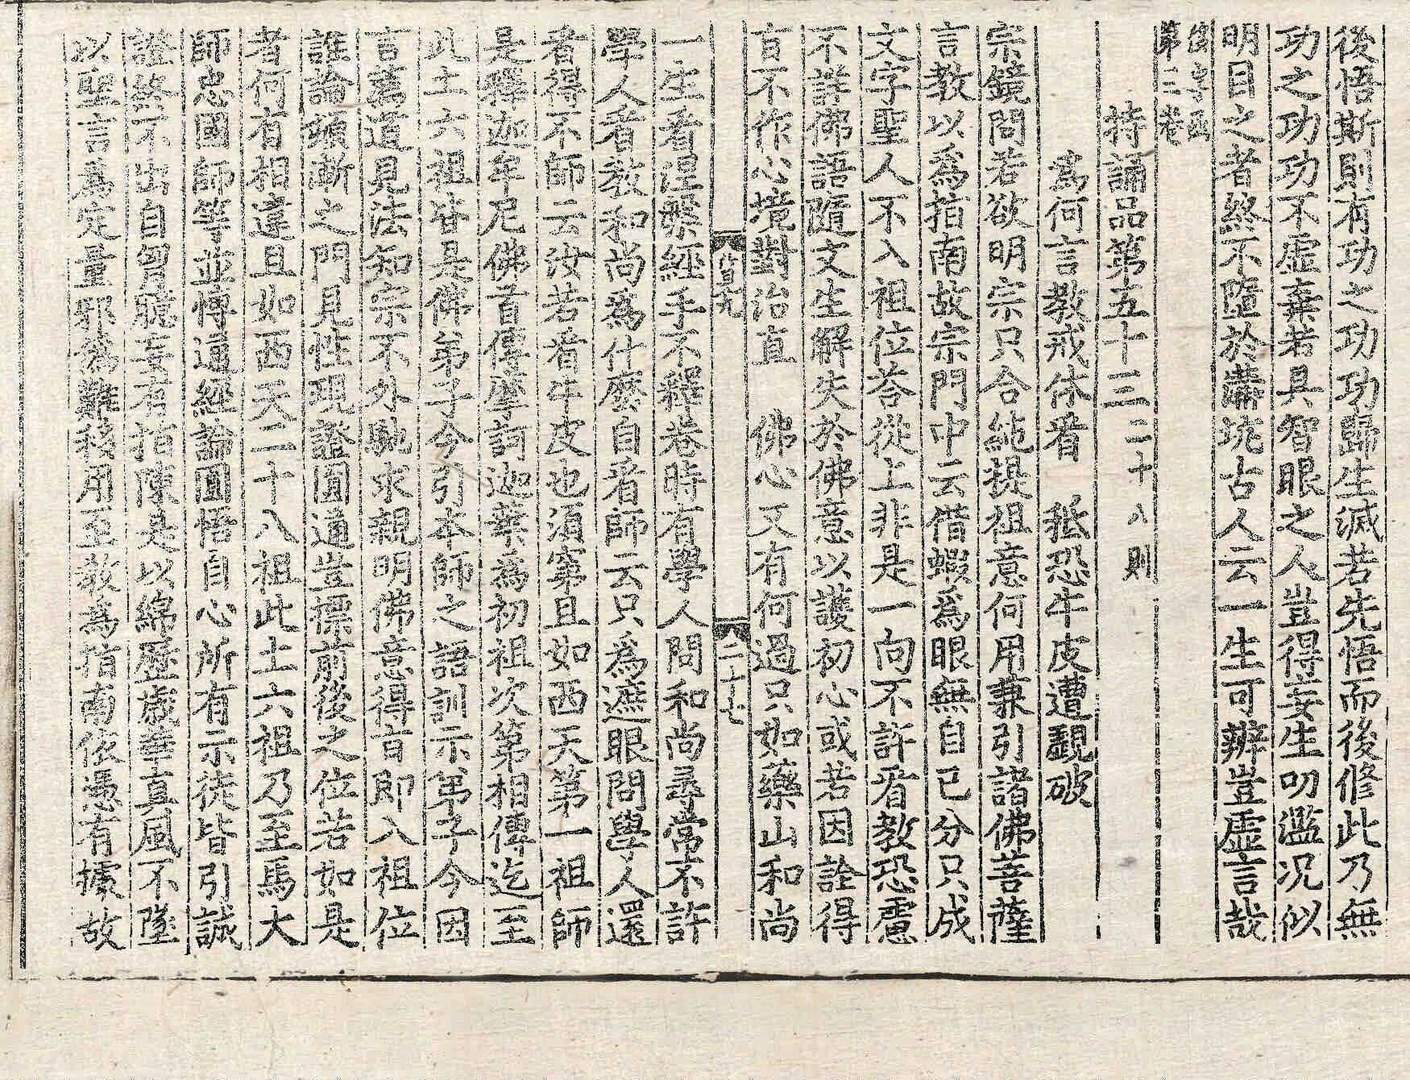 後悟斯則有功之功功歸生滅若先悟而後修此乃無
功之功功不虛棄若具智眼之人豈得妄生叨濫况似
明目之者終不墮於溝坑古人云一生可辦豈虛言哉
第三卷
持誦品第五十三 二十八則
爲何言教戒休看 秪恐牛皮遭覷破
宗鏡問若欲明宗只合純提祖意何用兼引諸佛菩薩
言教以爲指南故宗門中云借蝦爲眼無自己分只成
文字聖人不入祖位荅從上非是一向不許看教恐慮
不詳佛語隨文生解失於佛意以護初心或若因詮得
㫖不作心境對治直 佛心又有何過只如藥山和尚
二十七
一生看涅槃經手不釋卷時有學人問和尚尋常不許
學人看教和尚爲什麽自看師云只爲遮眼問學人還
看得不師云汝若看牛皮也須穿且如西天第一祖師
是釋迦牟尼佛首傳摩訶迦葉爲初祖次第相傳迄至
此土六祖皆是佛弟子今引本師之語訓示弟子令因
言薦道見法知宗不外馳求親明佛意得㫖即入祖位
誰論頓漸之門見性現證圓通豈標前後之位若如是
者何有相違且如西天二十八祖此土六祖乃至馬大
師忠國師等並愽通經論圓悟自心所有示徒皆引誠
證終不出自胷臆妄有指陳是以綿歷歲華真風不墜
以聖言爲定量邪僞難移用至教爲指南依憑有據故